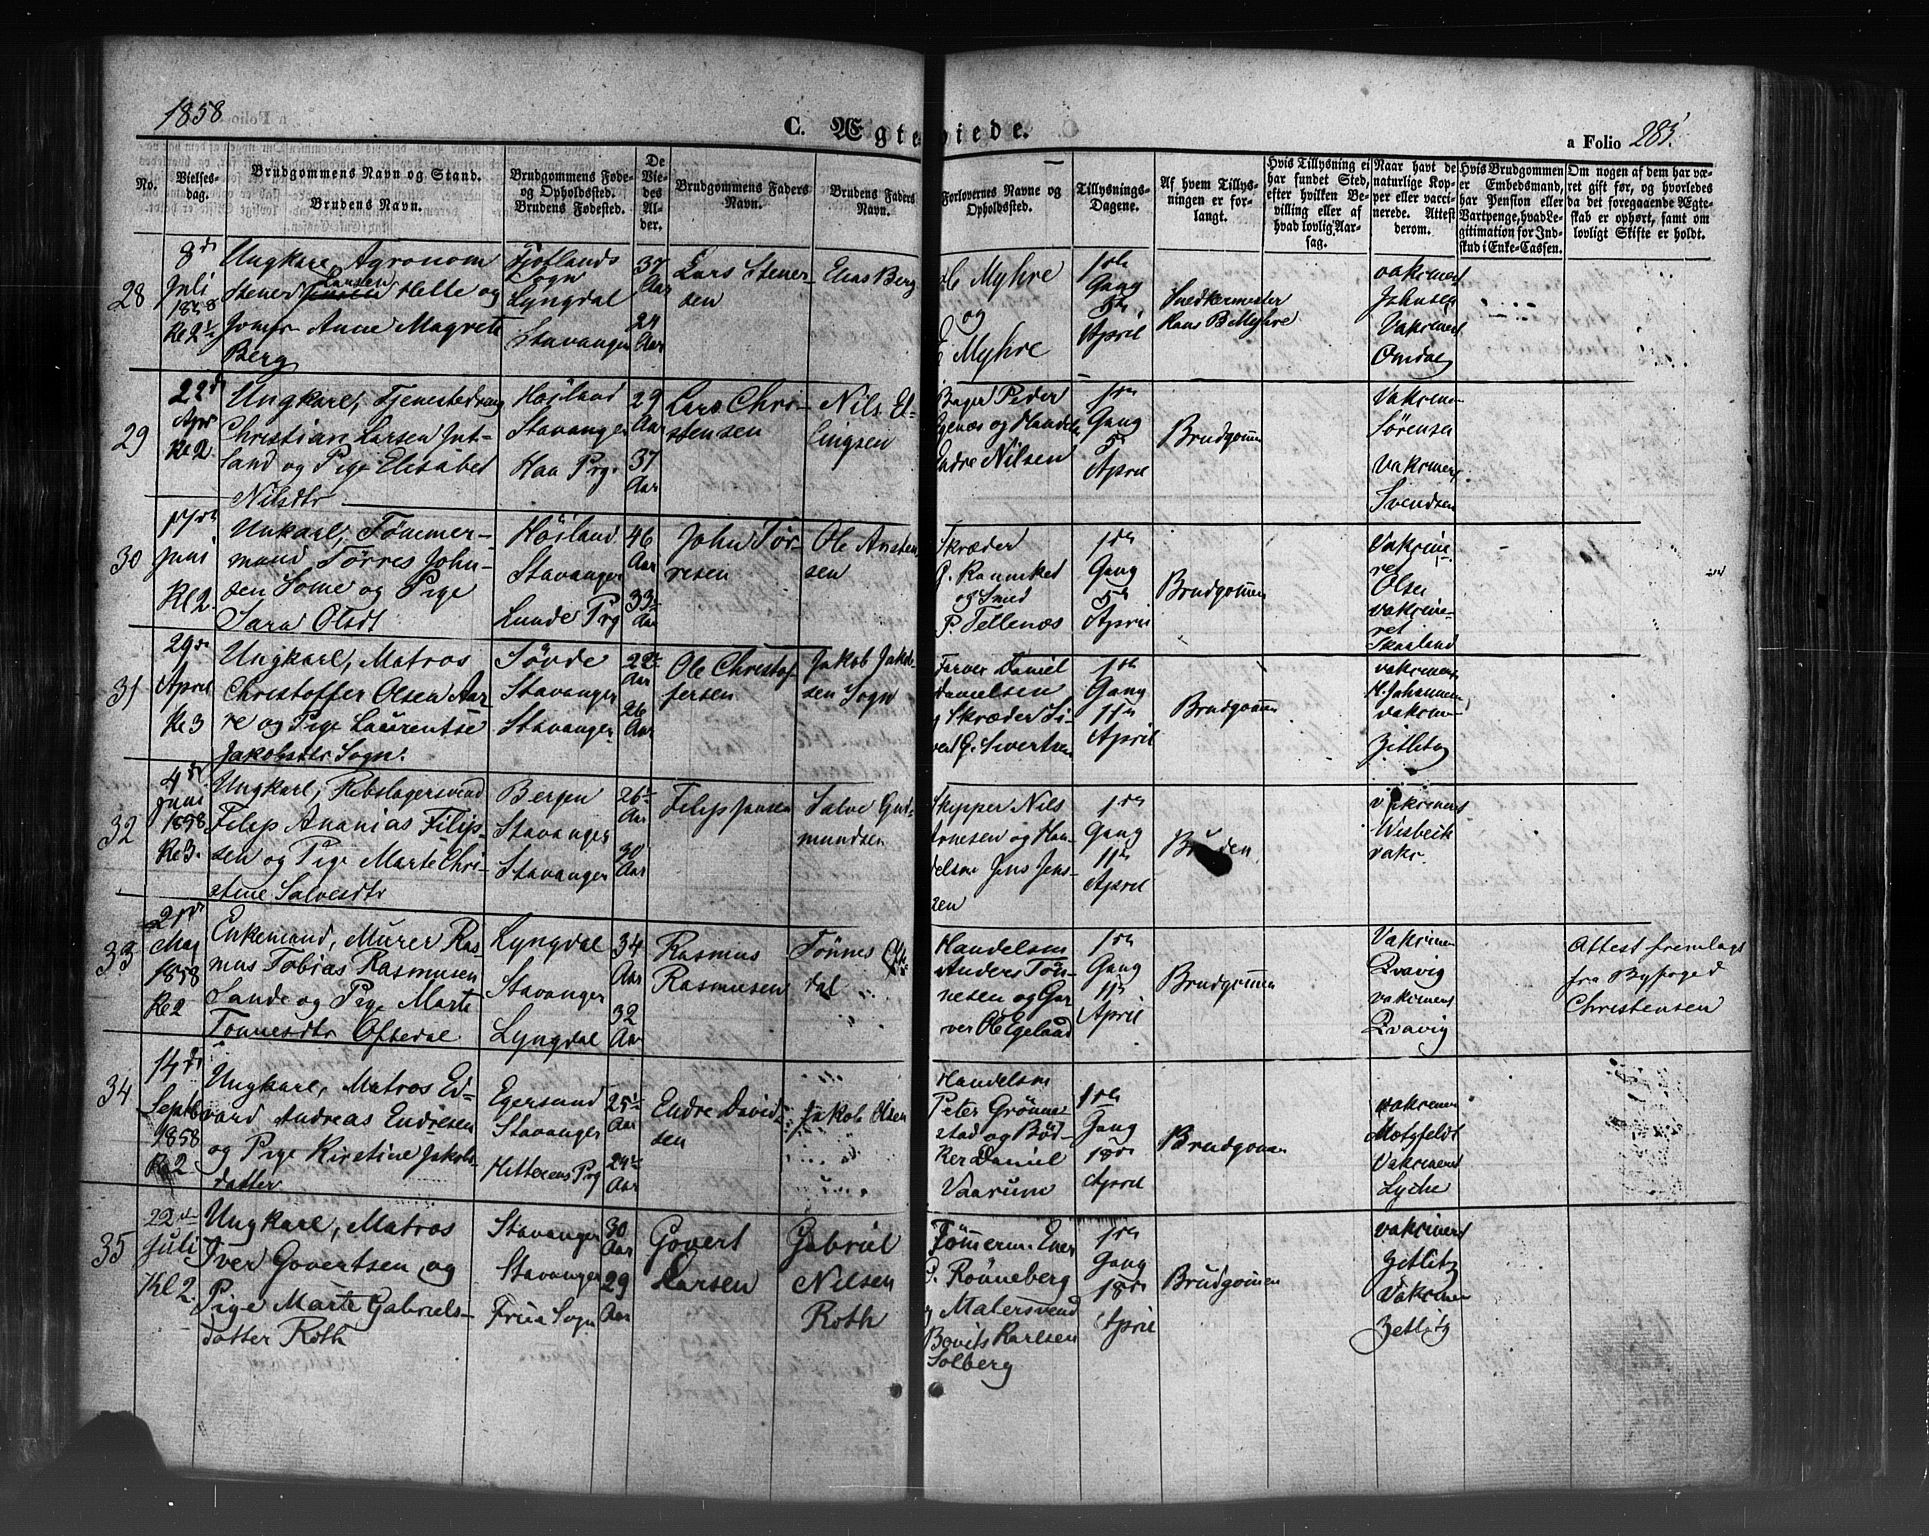 1858
C. Ægteviede.
a Folio 283.
No.
Vielses-
dag.
Brudgommens Navn og Stand.
Brudens Navn.
Brudgommens Føde-
og Opholdssted.
Brudens Fødested.
De
Vie-
des
Al-
der.
Brudgommens Faders
Navn.
Brudens Faders
Navn.
Forlovernes Navne og
Opholdssted.
Tillysnings-
Dagene.
Af hvem Tillys-
ningen er for-
langt.
Hvis Tillysning ei
har fundet Sted,
efter hvilken Be-
villing eller af
hvad lovlig Aar-
sag.
Naar havt de
naturlige Kop-
per eller vacci-
nerede. Attest
derom.
Hvis Brudgommen
er Embedsmand,
har Pension eller
Vartpenge, hvad Le-
gitimation for Ind-
skud i Enke-Cassen.
Om nogen af dem har væ-
ret gift før, og hvorledes
da det foregaaende Ægte-
skab er ophørt, samt om
lovligt Skifte er holdt.
28
8de
Juli
1858
Kl 2½
Ungkarl, Agronom
Stener Larsen Helle og
Jomfr Anne Magrete
Berg
Fjotlands
Sogn
Lyngdal
Stavanger
37
Aar
24
Aar
Lars Stener-
sen
Elias Berg
Myhre
og
Myhre
1ste
Gang
5te
April
Snedkermester
Hans B Myhre
vakcinert
Johnsen
Vakcinert
Omdal
29
22d
Apr
Kl 2
Ungkarl, Tjenestedreng
Christian Larsen Jut-
land og Pige Elisabet
Nilsdtr
Høiland
Stavanger
Haa Prg.
29
Aar
37
Aar
Lars Chri-
stensen
Nils El-
lingsen
Bager Peder
og Handelsm
Endre Nilsen
1ste
Gang
5te
April
Brudgommen
Vakcine
Sørensen
Vakcinert
Svendsen
30
17de
Juni
Kl 2
Unkarl, Tømmer-
mand Tørres John-
sen Some og Pige
Sara Olsdt
Høiland
Stavanger
Lunde Prg
46
Aar
33
Aar
John Tør-
resen
Ole Aasten-
sen
Skræder
og Smed
P. Tellenæs
1ste
Gang
5te
April
Brudgommen
Vakcine-
ret
Olsen
vakcine-
ret
Skaaland
31
29de
April
Kl 3
Ungkarl, Matros
Christoffer Olsen Aar-
re og Pige Laurentse
Jakobsdtr Sogn.
Søvde
Stavanger
Stavanger
22
Aar
26
Aar
Ole Christof-
fersen
Jakob Jakob-
sen Sogn
Farver Daniel
Danielsen
og Skræder Si-
vert G. Sivertsen
1ste
Gang
11te
April
Brudgommen
vakcinert
H. Johannesen
vakcine
Zetlitz
32
4de
Juni
1858
Kl 3.
Ungkarl, Rebslagersvend
Filip Ananias Filip-
sen og Pige Marte Chri-
stine Salvesdtr
Bergen
Stavanger
Stavanger
26
Aar
30
Aar
Filip Jansen
Salve Gud-
mundsen
Skipper Nils
Arnesen og Han-
delsm Jens Jens-
sen
1ste
Gang
11te
April
Bruden
vakcinert
Wisbech
vakc.
33
21de
Maj
1858
Kl 2
Enkemand, Murer Ras-
mus Tobias Rasmusen
Sande og Pige Marte
Tønnesdtr Oftedal
Lyngdal
Stavanger
Lyngdal
34
Aar
32
Aar
Rasmus
Rasmusen
Tønnes Ofte-
dal
Handelsm
Anders Tøn-
nesen og Gar-
ver O Egeland
1ste
Gang
11te
April
Brudgommen
Vakcine
Qvavig
vakcinert
Qvavig
Attest fremlagt
fra Byfoged
Christensen
34
14de
Septb
1858
Kl 2
Ungkarl, Matros Ed-
vard Andreas Endresen
og Pige Kirstine Jakobs-
datter
Egersund
Stavanger
Hitterøens Prg
25
Aar
24
Aar
Endre David-
sen
Jakob Olsen
Handelsm
Peter Grønne-
stad og Bød-
ker Daniel
Vaarum
1ste
Gang
18de
April
Brudgommen
vakciner
Motzfeldt
Vakcinert
Lyche
35
22de
Juli
Kl 2.
Ungkarl, Matros
Iver Govertsen og
Pige Marte Gabriels-
datter Roth
Stavanger
Stavanger
Frue Sogn
30
Aar
29
Aar
Govert
Larsen
Gabriel
Nilsen
Roth
Tømmerm. Ener
Rønneberg
og Malersvend
Karlsen
Solberg
1ste
Gang
18de
April
Brudgommen
vakcinert
Zetlitz
Vakciner
Zetlitz